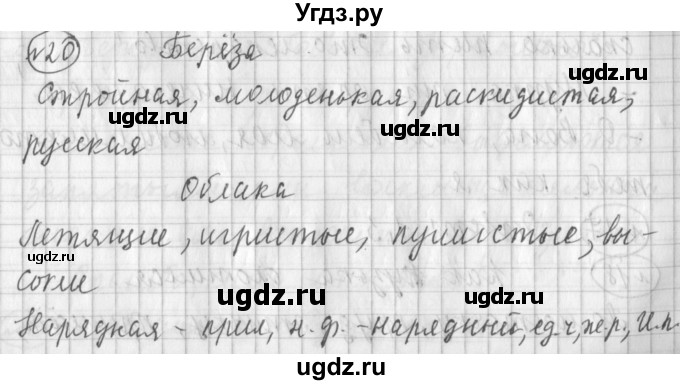 Угдз.ру
№20 Берёза
Стройная, молоденькая, раскидистая,
ugdz.ru ugdz.ru
русская
ugdz.ru
Облака
Летящие, игристые, пушистые, вы-
ugdz.ru
сокие
ugdz.ru ugdz.ru
Нарядная - прил, н.ф. - нарядный, ед.ч, ж.р., И.п.
ugdz.ru